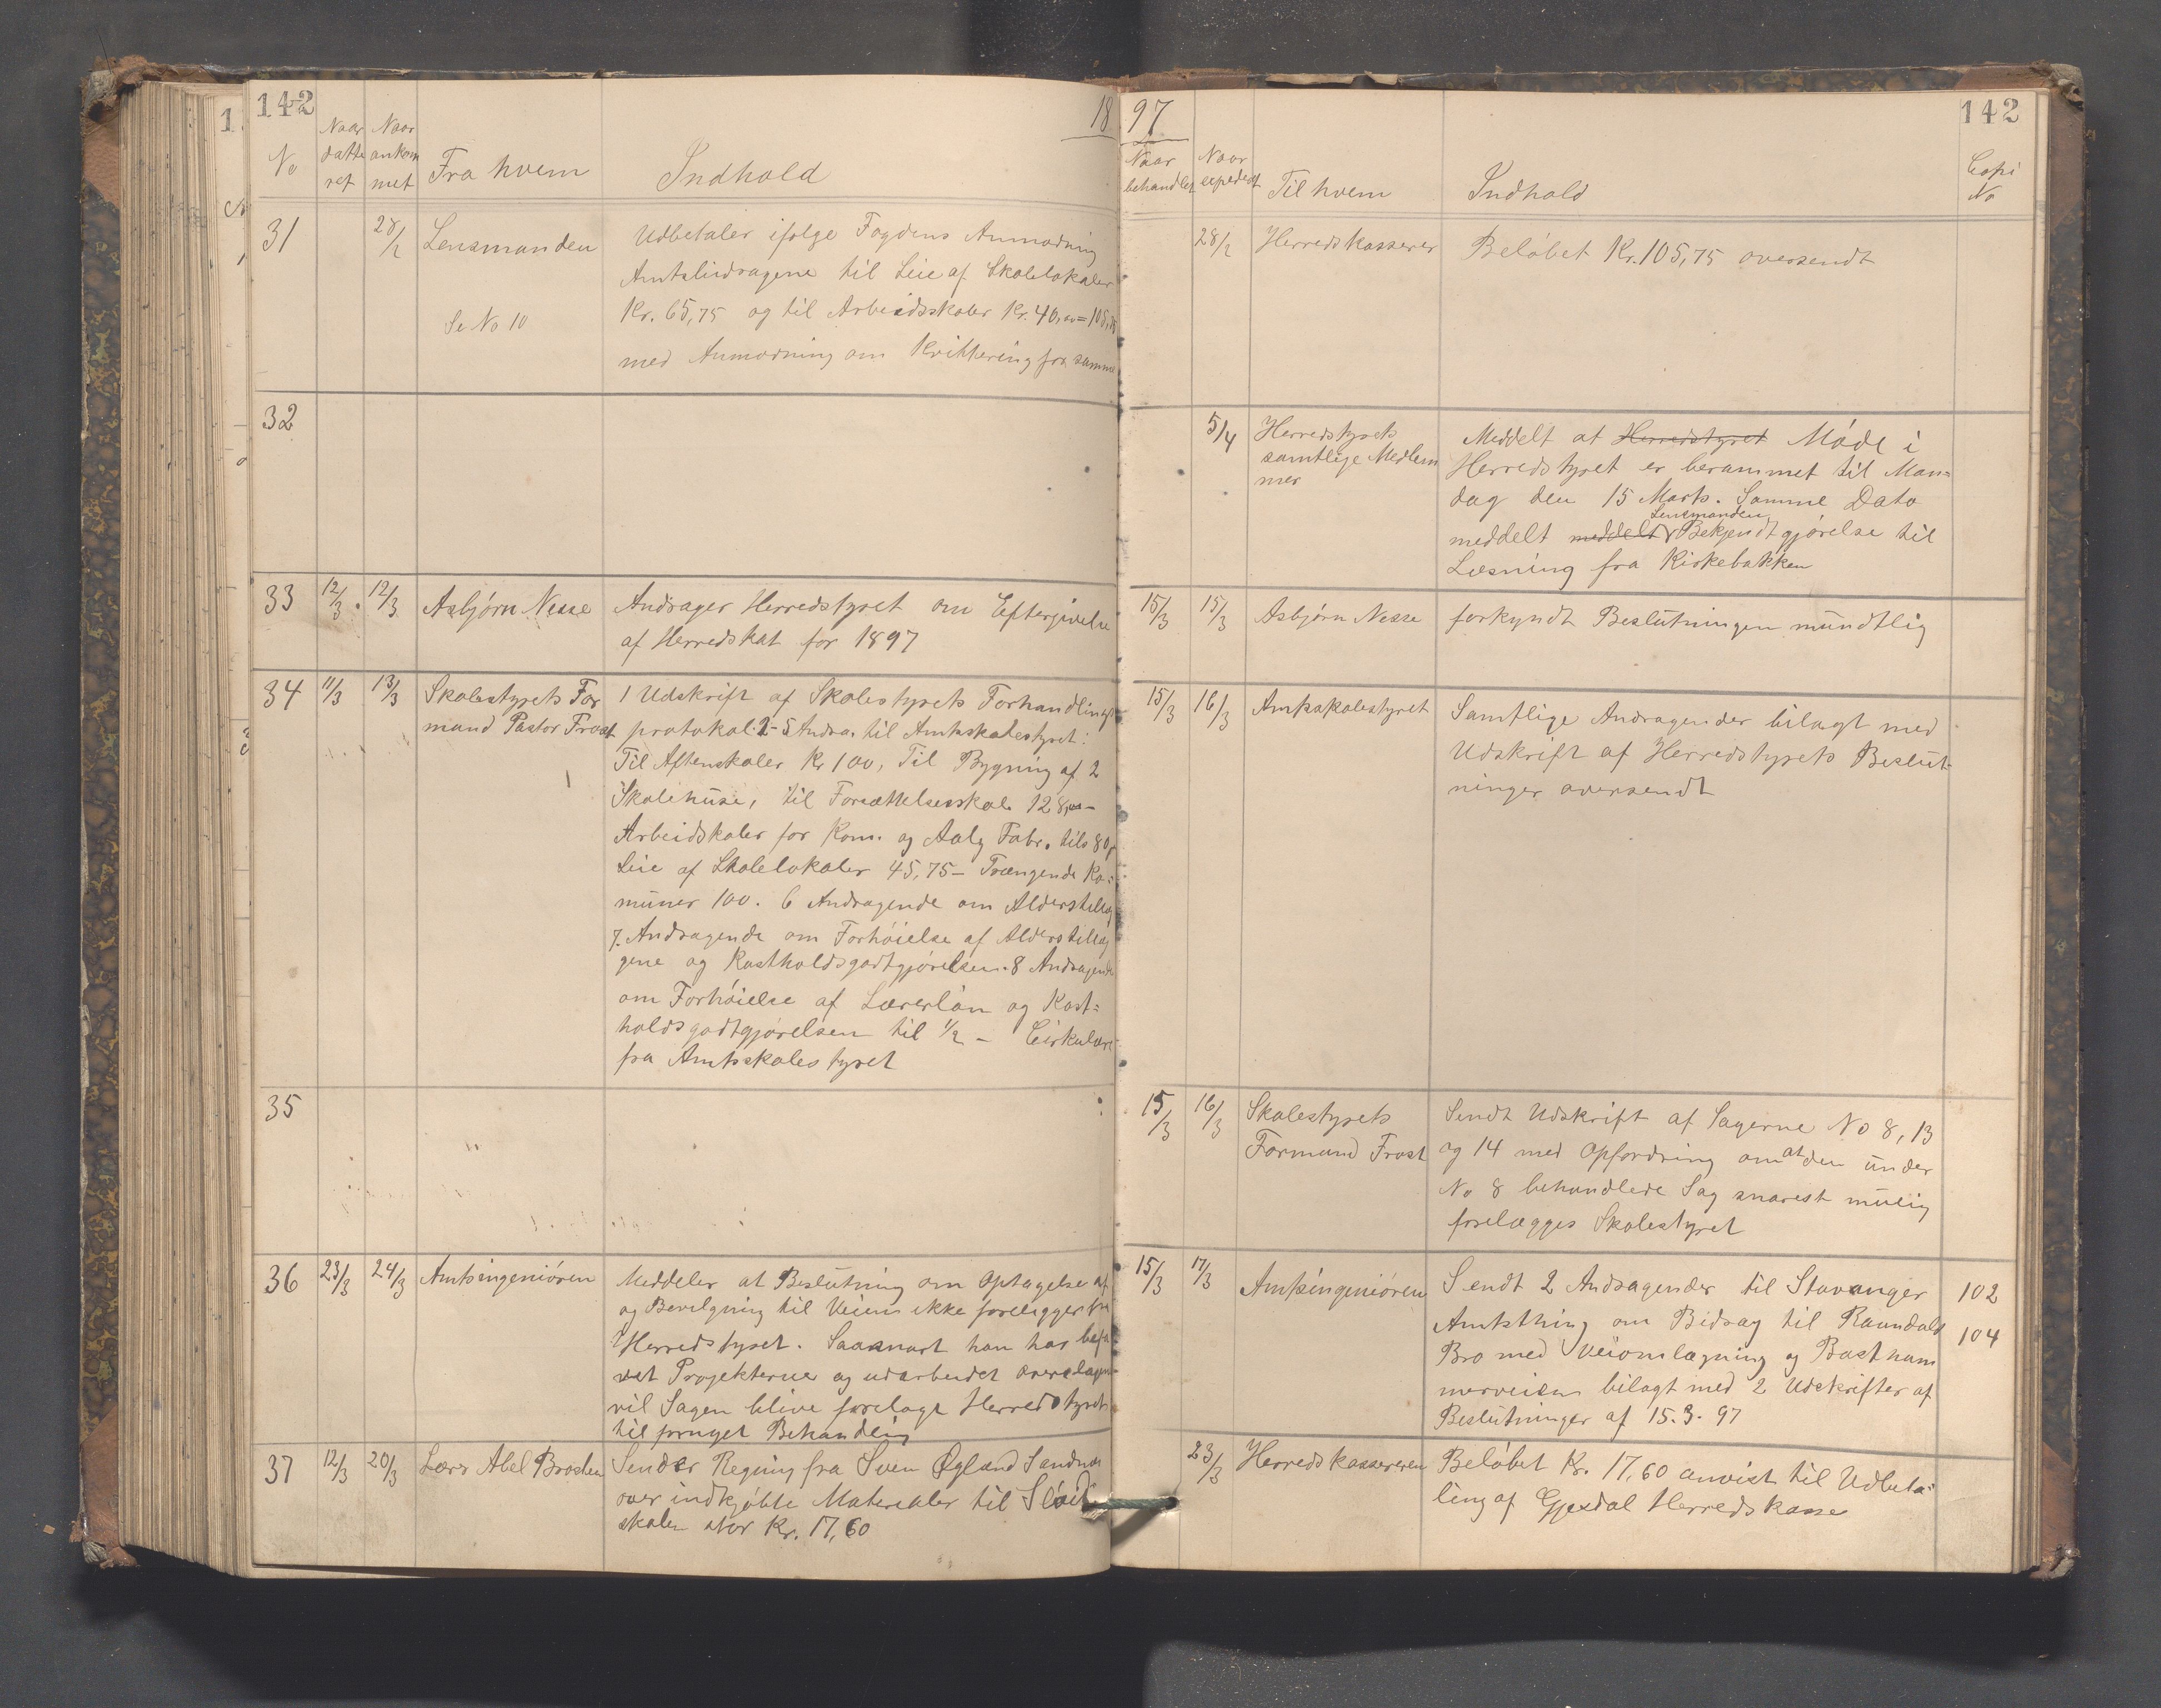 142
18
No
Naar datte ret
Naar ankom met
Fra hvem
Indhold
31
28/2
Lensmanden
Se No 10
Udbetaler ifølge Fogdens Anmodning
Amtsbidragene til Leie af Skolelokaler
Kr. 65,75 og til Arbeidsskoler Kr. 40,00 = 105,75
med Anmodning om Kvittering fra samme
32
33
12/3
12/3
Asbjørn Nesse
Andrager Herredstyret om Eftergivelse
af Herredskat for 1897
34
11/3
13/3
Skolestyrets For
mand Pastor Frost
1 Udskrift af Skolestyrets Forhandlings
protokol. 2-5 Andra. til Amtsskolestyret:
Til Aftenskoler Kr 100, Til Bygning af 2
Skolehuse, til Forsættelsesskole 128,00 –
Arbeidskoler for Kom. og Aalg Fabr. tils 80,
Leie af Skolelokaler 45,75 – Trængende Ko=
muner 100. 6 Andragende om Alderstillæg
7. Andragende om Forhøielse af Alderstillæg
gene og Kostholdsgodtgjørelsen. 8 Andragende
om Forhøielse af Lærerløn og Kost=
holdsgodtgjørelsen til 1/2 – Cirkulære
fra Amtsskolestyret
35
36
23/3
24/3
Amtsingeniøren
Meddeler at Beslutning om Optagelse af
og Bevilgning til Veien ikke foreligger fra
Herredstyret. Saasnart han har befa
ret Projekterne og udarbeidet Overslagene
vil Sagen blive forelagt Herredstyret
til fornyet Behandling
37
12/3
20/3
Lærer Abel Brosten
Sender Regning fra Sven Øgland Sandnes
over indkjøbte Materialer til Sløid
skolen stor Kr. 17,60
97
142
Naar behandlet
Naar expederet
Til hvem
Indhold
Copi No
28/2
Herredskasserer
Beløbet Kr. 105,75 oversendt
5/4
Herredstyrets
samtlige Medlem
mer
Meddelt at Herredstyret Møde i
Herredstyret er berammet til Man=
dag den 15 Marts. Samme Dato
Lensmanden
meddelt meddelt Bekjendtgjørelse til
Læsning fra Kirkebakken
15/3
15/3
Asbjørn Nesse
forkyndt Beslutningen mundtlig
15/3
16/3
Amtsskolestyret
Samtlige Andragender bilagt med
Udskrift af Herredstyrets Beslut-
ninger oversendt
15/3
16/3
Skolestyrets
Formand Frost
Sendt Udskrift af Sagerne No 8, 13
og 14 med Opfordring om at den under
No 8 behandlede Sag snarest mulig
forelægges Skolestyret
15/3
17/3
Amtsingeniøren
Sendt 2 Andragender til Stavanger
Amtsthing om Bidrag til Raundals
Bro med Veiomlægning og Basthum
merveien bilagt med 2 Udskrifter af
Beslutninger af 15.3.97
102
104
23/3
Herredskassereren
Beløbet Kr. 17,60 anvist til Udbeta=
ling af Gjesdal Herredskasse